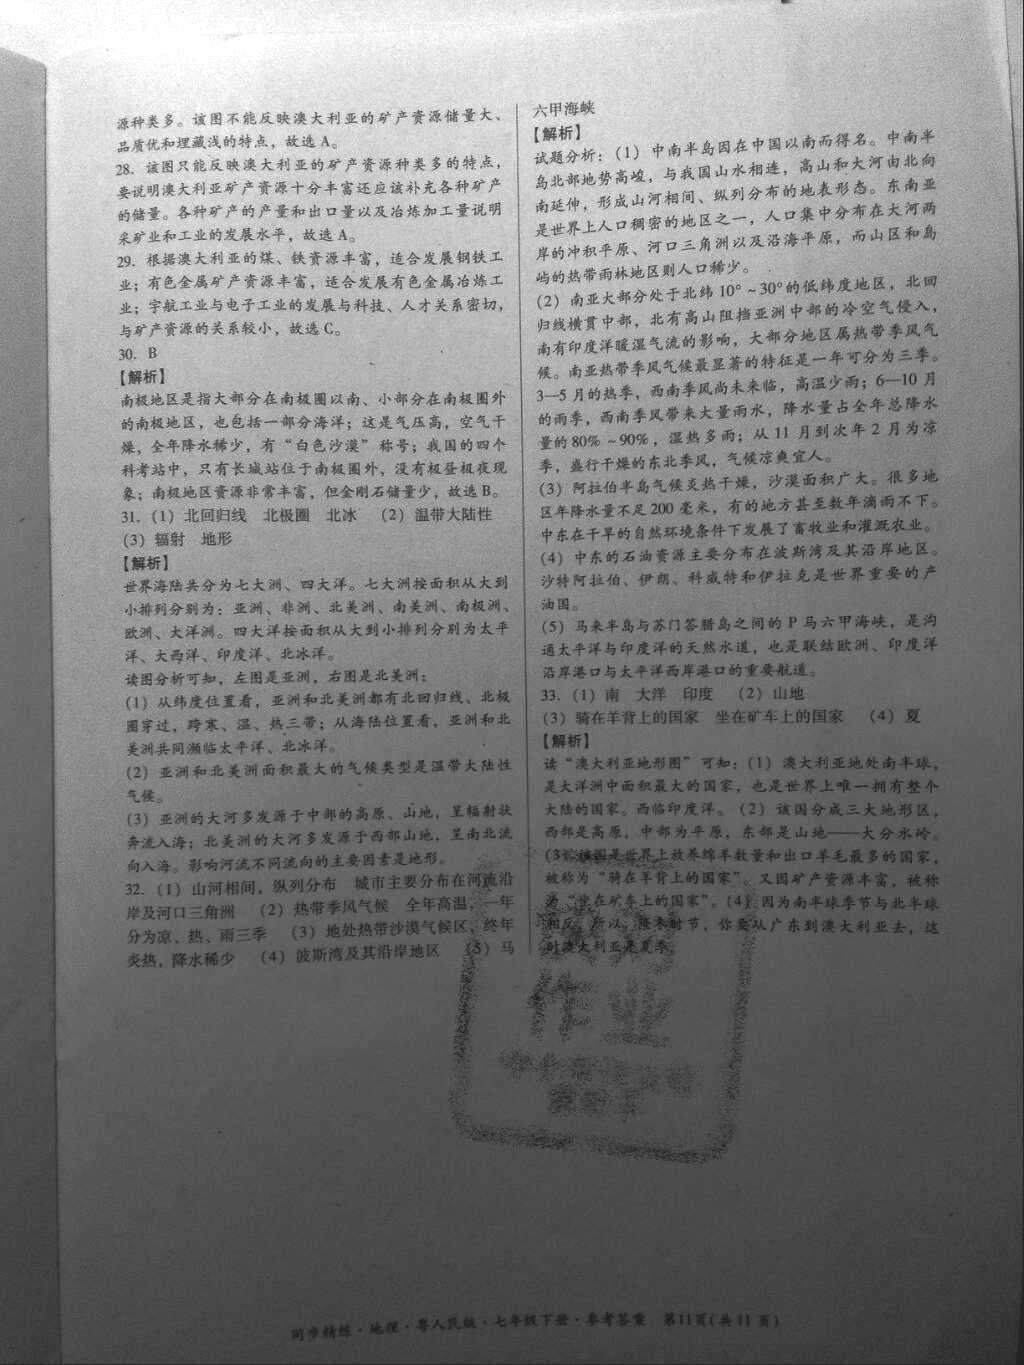 源种类多。该图不能反映澳大利亚的矿产资源储量大、
品质优和埋藏浅的特点，故选 A。
28. 该图只能反映澳大利亚的矿产资源种类多的特点，
要说明澳大利亚矿产资源十分丰富还应该补充各种矿产
的储量。各种矿产的产量和出口量以及冶炼加工量说明
采矿业和工业的发展水平，故选 A。
29. 根据澳大利亚的煤、铁资源丰富，适合发展钢铁工
业；有色金属矿产资源丰富，适合发展有色金属冶炼工
业；宇航工业与电子工业的发展与科技、人才关系密切，
与矿产资源的关系较小，故选 C。
30. B
【解析】
南极地区是指大部分在南极圈以南、小部分在南极圈外
的南极地区，也包括一部分海洋；这是气压高，空气干
燥，全年降水稀少，有“白色沙漠”称号；我国的四个
科考站中，只有长城站位于南极圈外，没有极昼极夜现
象；南极地区资源非常丰富，但金刚石储量少，故选 B。
31. （1）北回归线　北极圈　北冰　（2）温带大陆性
（3）辐射　地形
【解析】
世界海陆共分为七大洲、四大洋。七大洲按面积从大到
小排列分别为：亚洲、非洲、北美洲、南美洲、南极洲、
欧洲、大洋洲。四大洋按面积从大到小排列分别为太平
洋、大西洋、印度洋、北冰洋。
读图分析可知，左图是亚洲，右图是北美洲：
（1）从纬度位置看，亚洲和北美洲都有北回归线、北极
圈穿过，跨寒、温、热三带；从海陆位置看，亚洲和北
美洲共同濒临太平洋、北冰洋。
（2）亚洲和北美洲面积最大的气候类型是温带大陆性
气候。
（3）亚洲的大河多发源于中部的高原、山地，呈辐射状
奔流入海；北美洲的大河多发源于西部山地，呈南北流
向入海。影响河流不同流向的主要因素是地形。
32. （1）山河相间，纵列分布　城市主要分布在河流沿
岸及河口三角洲　（2）热带季风气候　全年高温，一年
分为凉、热、雨三季　（3）地处热带沙漠气候区，终年
炎热，降水稀少　（4）波斯湾及其沿岸地区　（5）马
六甲海峡
【解析】
试题分析：（1）中南半岛因在中国以南而得名。中南半
岛北部地势高峻，与我国山水相连，高山和大河由北向
南延伸，形成山河相间、纵列分布的地表形态。东南亚
是世界上人口稠密的地区之一，人口集中分布在大河两
岸的冲积平原、河口三角洲以及沿海平原，而山区和岛
屿的热带雨林地区则人口稀少。
（2）南亚大部分处于北纬 10° ~ 30°的低纬度地区，北回
归线横贯中部，北有高山阻挡亚洲中部的冷空气侵入，
南有印度洋暖湿气流的影响，大部分地区属热带季风气
候。南亚热带季风气候最显著的特征是一年可分为三季。
3—5 月的热季，西南季风尚未来临，高温少雨；6—10 月
的雨季，西南季风带来大量雨水，降水量占全年总降水
量的 80% ~ 90%，湿热多雨；从 11 月到次年 2 月为凉
季，盛行干燥的东北季风，气候凉爽宜人。
（3）阿拉伯半岛气候炎热干燥，沙漠面积广大。很多地
区年降水量不足 200 毫米，有的地方甚至数年滴雨不下。
中东在干旱的自然环境条件下发展了畜牧业和灌溉农业。
（4）中东的石油资源主要分布在波斯湾及其沿岸地区。
沙特阿拉伯、伊朗、科威特和伊拉克是世界重要的产
油国。
（5）马来半岛与苏门答腊岛之间的 P 马六甲海峡，是沟
通太平洋与印度洋的天然水道，也是联结欧洲、印度洋
沿岸港口与太平洋西岸港口的重要航道。
33. （1）南　大洋　印度　（2）山地
（3）骑在羊背上的国家　坐在矿车上的国家　（4）夏
【解析】
读“澳大利亚地形图”可知：（1）澳大利亚地处南半球，
是大洋洲中面积最大的国家，也是世界上唯一拥有整个
大陆的国家。西临印度洋。（2）该国分成三大地形区，
西部是高原，中部为平原，东部是山地——大分水岭。
（3）该国是世界上放养绵羊数量和出口羊毛最多的国家，
被称为“骑在羊背上的国家”。又因矿产资源丰富，被称
为“坐在矿车上的国家”。（4）因为南半球季节与北半球
相反，所以，隆冬时节，你要从广东到澳大利亚去，这
时澳大利亚是夏季。
作业
同步精练·地理·粤人民版·七年级下册·参考答案　第11页（共 11 页）